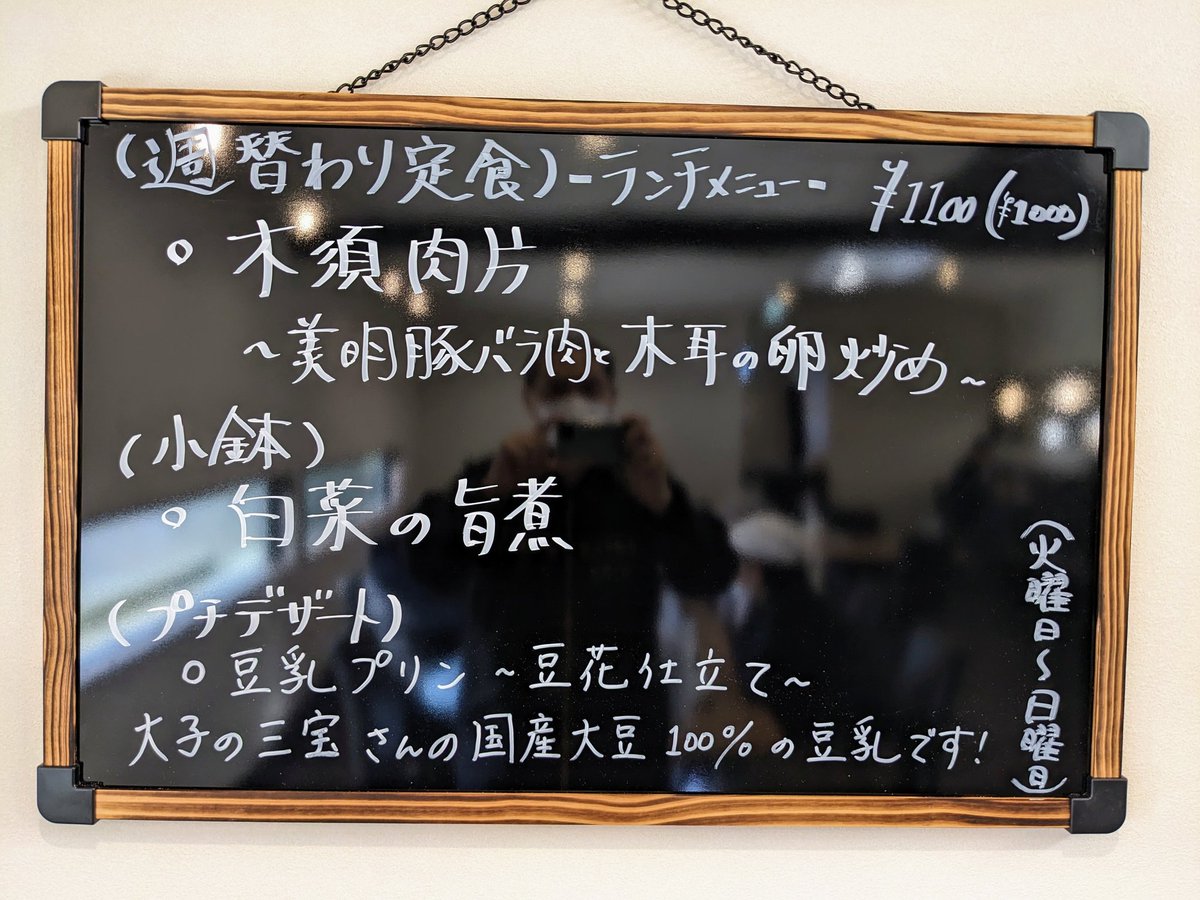 (週替わり定食)-ランチメニュー- ¥1100(¥1000)
○ 木須肉片
~美明豚バラ肉と木耳の卵炒め~
(小鉢)
○ 白菜の旨煮
(プチデザート)
○ 豆乳プリン ~豆花仕立て~
大子の三宝さんの国産大豆100%の豆乳です!
(火曜日~日曜日)